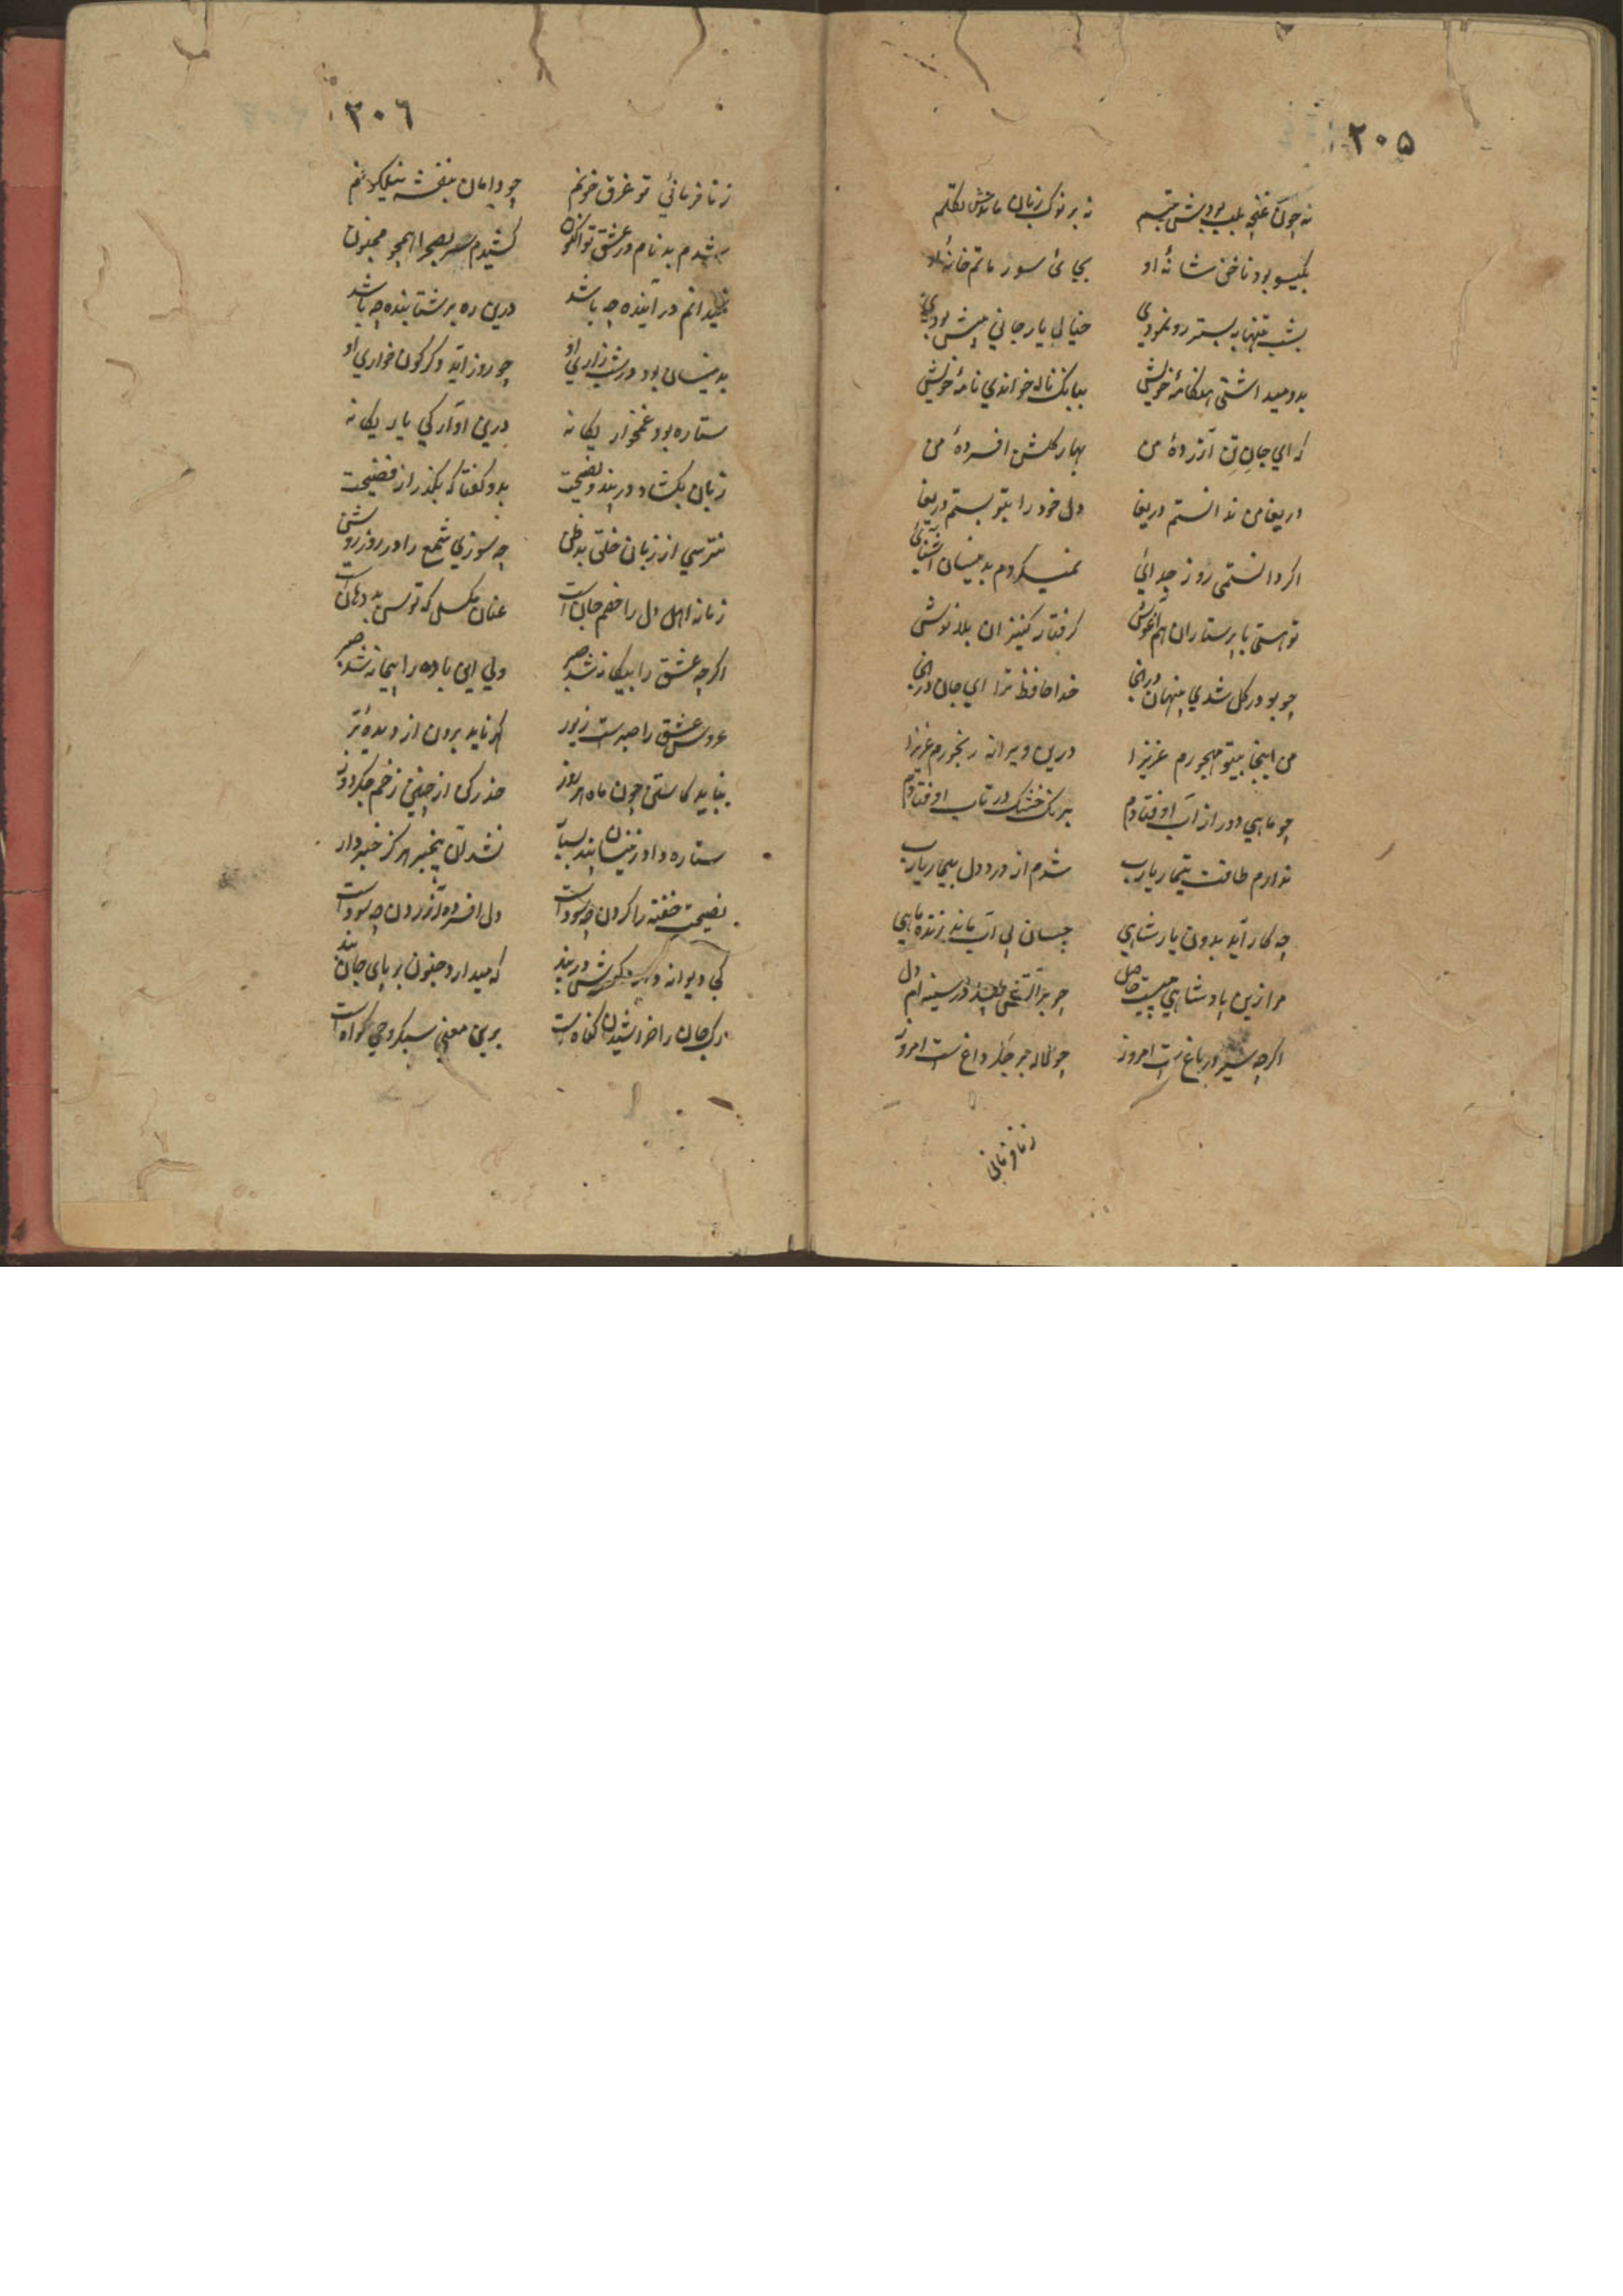 ٢٠٥
نه چون غنچه بلب بودیش تبسم نه بر نوک زبان ماندش تکلم
بگیسو بود ناخن شانهٔ او بجایٔ سور ماتم خانهٔ او
بشب تنها به بستر رو نمودی خیال یار جانی پیش بودی
بدو میداشتی هنکامهٔ خویش ببانک ناله خواندی نامهٔ خویش
که ای جانِ تن آزردهٔ من بهار کلشن افسردهٔ من
دریغا من ندانستم دریغا دل خود را بتو بستم دریغا
اکر دانستمی روز جدائی نمیکردم بدینسان آشنائی
تو هستی با پرستاران هم آغوش کرفتار کنیزان بلا نوش
چو بو در کل شدی پنهان درانجا خدا حافظ ترا ای جان درانجا
من اینجا بیتو مهجورم عزیزا درین ویرانه رنجورم عزیزا
چو ماهی دور از آب اوفتادم بریک خشک در تاب اوفتادم
ندارم طاقت تیمار یارب شدم از درد دل بیمار یارب
چه کار آید بدون یار شاهی چسان بی آب ماند زنده ماهی
مرا زین پادشاهی چیست حاصل چو بر آتش طپد در سینه ام دل
اکرچه سیر در باغ ست امروز چو لاله بر جکر داغ ست امروز
زنافرمانی
٢٠٦
زنافرمانیٔ تو غرق خونم چو دامان بنفشه نیلکونم
شدم بدنام در عشق تو اکنون کشیدم سر بصحرا همچو مجنون
نمیدانم در آینده چه باشد درین ره بر شتابنده چه باشد
بدینسان بود در شب زاری او چو روز آید دکرکون خواری او
ستاره بود غمخوار یکانه درین آوارکی یار یکانه
زبان بکشاد در پند و نصیحت بدو کفتا که بکذر از فضیحت
نترسی از زبان خلق بدظن چه سوزی شمع را در روز روشن
زمانه اهل دل را خصم جان است عنان مکسل که توسن بد دهان است
اکرچه عشق را بیکانه شد صبر ولی این باده را پیمانه شد صبر
عروس عشق را صبرست زیور کهر ناید برون از دیدهٔ تر
بباید کاستن چون ماه هر روز حذر کن از چنین زخم جکردوز
ستاره داد زینسان پند بسیار نشد آن بیخبر هرکز خبردار
نصیحت خفته را کردن چه سود است دل افسرده آزردن چه سود است
کی دیوانه در کوشش پند که میدارد جنون بر پای جان بند
رک جان را خراشیدن کناه ست برین معنی سبکروحی کواه است